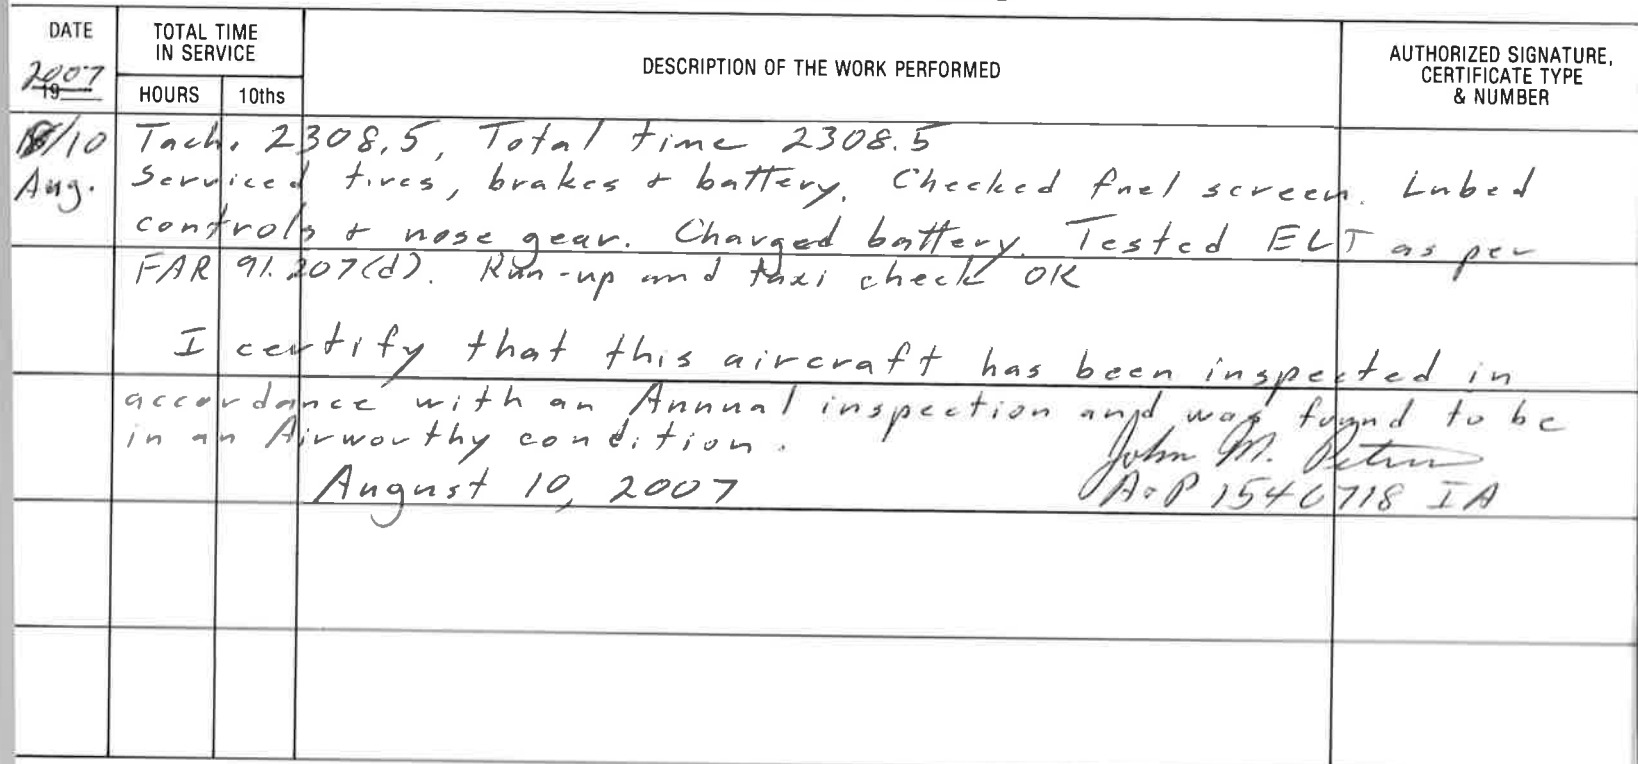 DATE
TOTAL TIME
IN SERVICE
DESCRIPTION OF THE WORK PERFORMED
AUTHORIZED SIGNATURE,
CERTIFICATE TYPE
& NUMBER
2007
19
HOURS
10ths
8/10 Tach. 2308.5, Total time 2308.5
Aug. Serviced tires, brakes & battery. Checked fuel screen. Lubed
controls & nose gear. Charged battery. Tested ELT as per
FAR 91.207(d). Run-up and taxi check OK
I certify that this aircraft has been inspected in
accordance with an Annual inspection and was found to be
in an Airworthy condition.
John M.
August 10, 2007
A&P 1546718 IA